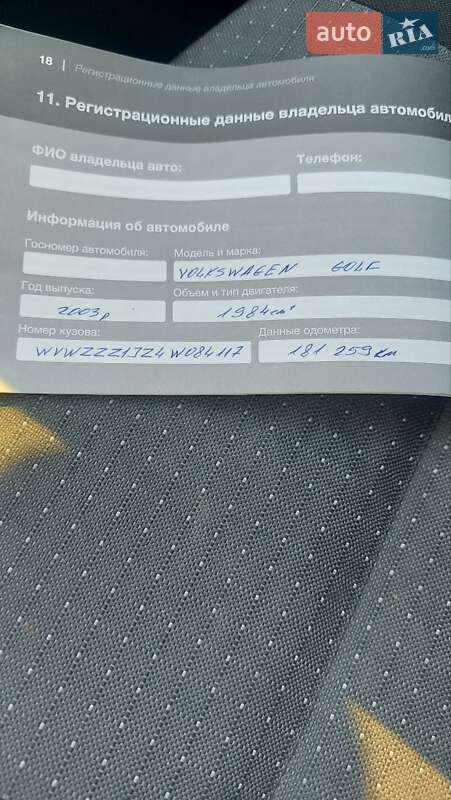 auto RIA.com
18 | Регистрационные данные владельца автомобиля
11. Регистрационные данные владельца автомобил
ФИО владельца авто: Телефон:
Информация об автомобиле
Госномер автомобиля: Модель и марка:
VOLKSWAGEN GOLF
Год выпуска: Объем и тип двигателя:
2003р 1984см³
Номер кузова: Данные одометра:
WVWZZZ1JZ4W084117 181 259км